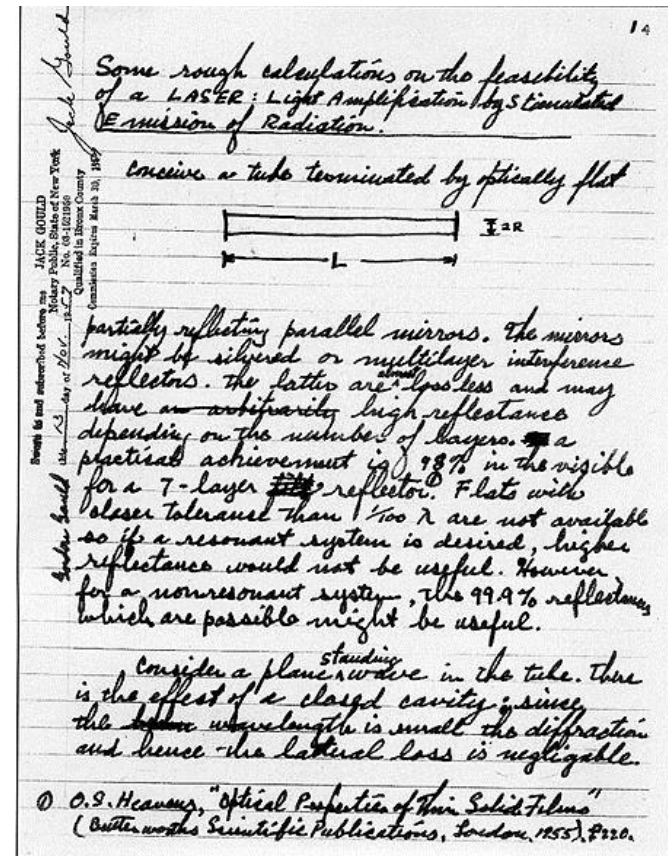 14
Some rough calculations on the feasibility
of a LASER: Light Amplification by Stimulated
Emission of Radiation.
conceive a tube terminated by optically flat
2R
L
partially reflecting parallel mirrors. The mirrors
might be silvered or multilayer interference
reflectors. The latter are almost lossless and may
have an arbitrarily high reflectance
depending on the number of layers. a
practical achievement is 98% in the visible
for a 7-layer reflector.① Flats with
closer tolerance than 1/100 λ are not available
so if a resonant system is desired, higher
reflectance would not be useful. However
for a nonresonant system, the 99.9% reflectances
which are possible might be useful.
Consider a plane standing wave in the tube. There
is the effect of a closed cavity; since
the wavelength is small the diffraction
and hence the lateral loss is negligable.
① O.S. Heavens, "Optical Properties of Thin Solid Films"
(Butterworths Scientific Publications, London, 1955), P220.
Jack Gould
Sworn to and subscribed before me
this 13 day of Nov. 1957
JACK GOULD
Notary Public, State of New York
No. 03-1521950
Qualified in Bronx County
Commission Expires March 30, 1959
Gordon Gould